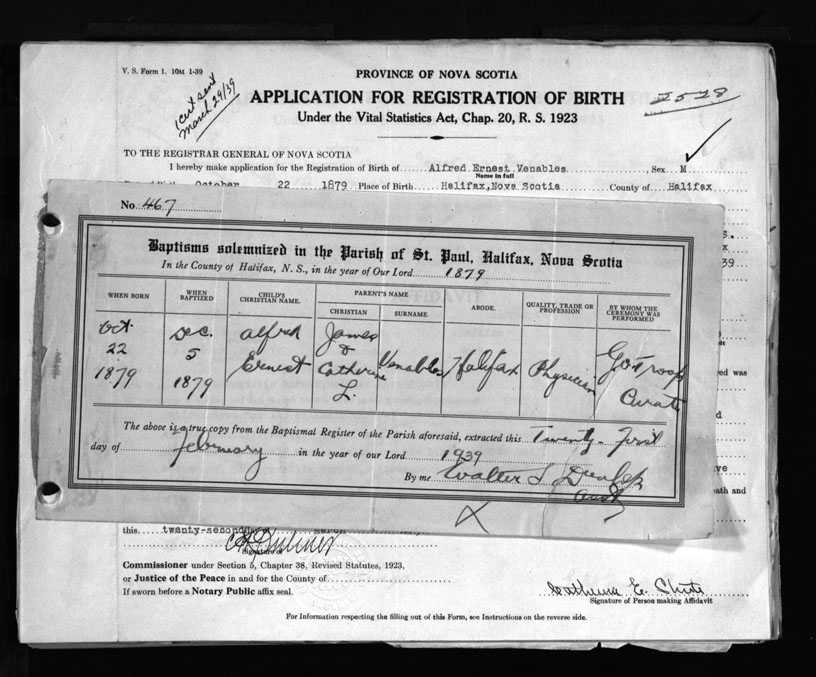 V. S. Form 1. 10M 1-39
1 cert sent
March 29/39
PROVINCE OF NOVA SCOTIA
APPLICATION FOR REGISTRATION OF BIRTH
2528
Under the Vital Statistics Act, Chap. 20, R. S. 1923
TO THE REGISTRAR GENERAL OF NOVA SCOTIA
I hereby make application for the Registration of Birth of Alfred Ernest Venables Sex M
Name in full
October 22 1879 Place of Birth Halifax, Nova Scotia County of Halifax
No. 467
Baptisms solemnized in the Parish of St. Paul, Halifax, Nova Scotia
In the County of Halifax, N. S., in the year of Our Lord 1879
WHEN BORN
WHEN BAPTIZED
CHILD'S CHRISTIAN NAME.
PARENT'S NAME
CHRISTIAN
SURNAME
ABODE.
QUALITY, TRADE OR PROFESSION
BY WHOM THE CEREMONY WAS PERFORMED
Oct. 22 1879
Dec. 5 1879
Alfred Ernest
James & Catherine L.
Venables
Halifax
Physician
Curate
The above is a true copy from the Baptismal Register of the Parish aforesaid, extracted this Twenty-First
day of February in the year of our Lord 1939
By me Walter L
this twenty-second
Signature of
Commissioner under Section 5, Chapter 38, Revised Statutes, 1923,
or Justice of the Peace in and for the County of
If sworn before a Notary Public affix seal.
E.
Signature of Person making Affidavit
For Information respecting the filling out of this Form, see Instructions on the reverse side.